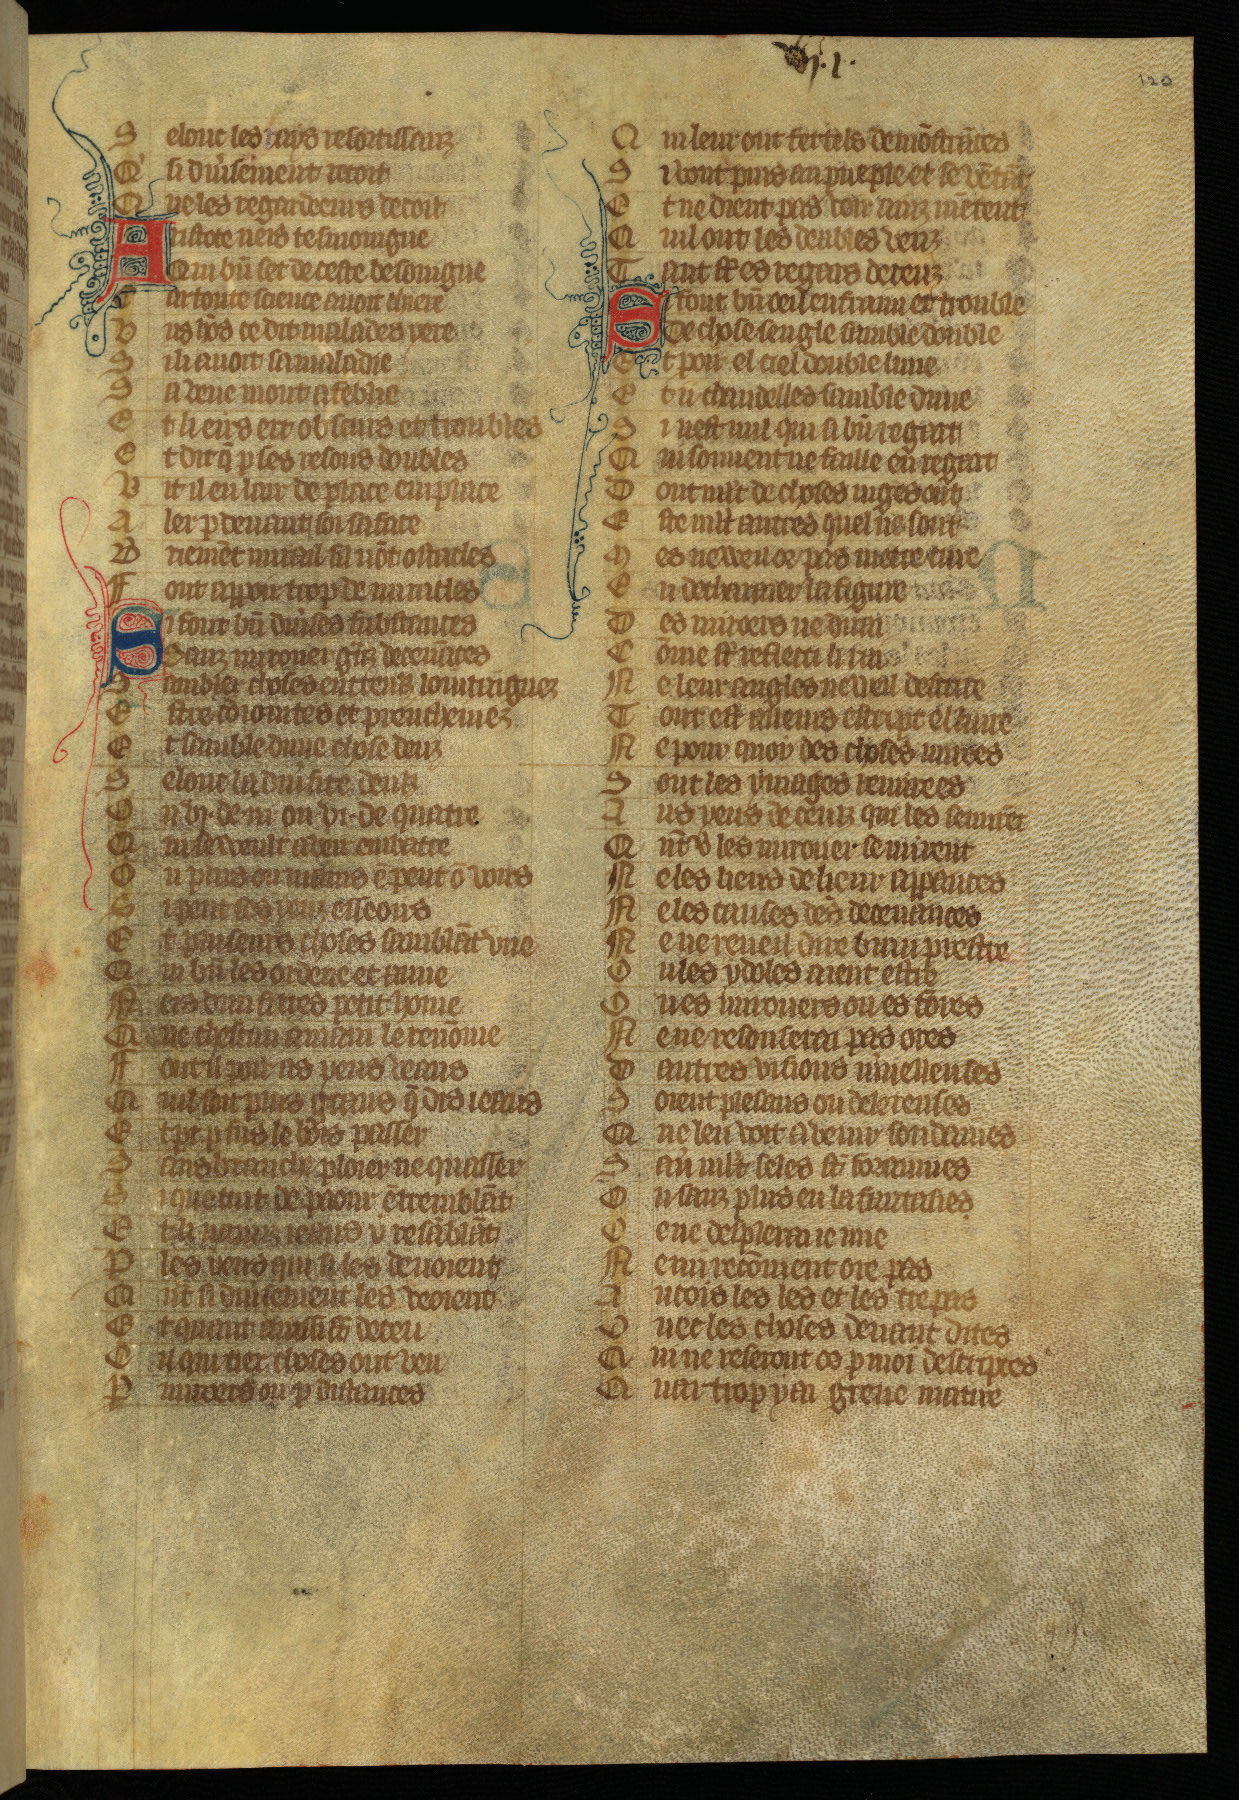 120
Selonc les rays resortissanz
Qui si diuersement recoit
Que les regardeeurs decoit
Aristote neis tesmoingne
Qui bn̄ set de ceste besoingne
Car toute science auoit chiere
Vns hōs ce dit malades yere
Si li auoit sa maladie
Sa veue mout afeblie
Et li eirs ert obscurs et troubles
Et dit q̄ p ses resons doubles
Vit il en lair de place en place
Aler p deuant soi sa face
Briemēt mirail sil nōt ostacles
Font apparoir trop de miracles
Si font bn̄ diuerses substances
Sanz mirouer grāz deceuāces
Sambler choses entreus lointaingnez
Estre conointes et prouchienes
Et samble dune chose deuz
Selonc la diuersite deuls
Ou vj. de iii ou vi. de quatre
Qui se veult a veir embatre
Ou plus ou mains ē peut ō voirs
Si peut ses yeuz esseoirs
Et pluseurs choses samblāt vne
Qui bn̄ les ordene et aune
Neis dun si tres petit home
Que chascun a nain le renōme
Font il paroir as yeus veans
Quil soit plus grans q̄ dis ieans
Et pt p sus le bois passer
Sans branche ploier ne quasser
Si que tuit de paour ē tremblāt
Et li ieans nains i resāblāt
P les yeus qui si les deuoient
Qnt si diuersement les voient
Et quant ainsi sōt deceu
Cil qui tiex choses ont veu
P miroers ou p distances
Qui leur ont fet tels demōstrāces
Si vont puis au pueple et se vētēt
Et ne dient pas voir ainz mētent
Quil ont les deables veuz
Tant sōt es regars deceuz
Si font bn̄ oeil enfermi et trouble
De chose sengle samble double
Et paroir el ciel double lune
Et ii chandelles samble dune
Si nest nul qui si bn̄ regart
Qui souuent ne faille en regart
Dont mlt de choses iugees ont
Este mlt autres quel ne sont
Mes ne weil or pas metre cure
En declairier la figure
Des miroers ne dirai
Cōme sōt reflecti li rai
Ne leur angles ne weil descrire
Tout est ailleurs escript el liure
Ne pour quoy des choses mirees
Sont les ymages remirees
As yeus de ceulz qui les semirēt
Qn̄t v les mirouer se mirent
Ne les lieus de lieur apparences
Ne les causes des deceuances
Ne ne reueil dire biau prestre
Ou les ydoles aient estre
Ou es mirouers ou es fores
Ne ne resonserai pas ores
Dautres visions mīuelleuses
Soient plesans ou delereuses
Que len voit auenir soudaines
Sau mlt seles st̄ foraines
Ou sanz plus en la fantasies
Ce ne despierra ie mie
Ne ni recōment ore pas
Aincois les les et les trespas
Auec les choses deuant dites
Qui ne reseront or p moi descriptes
Quar trop y ai greue matire